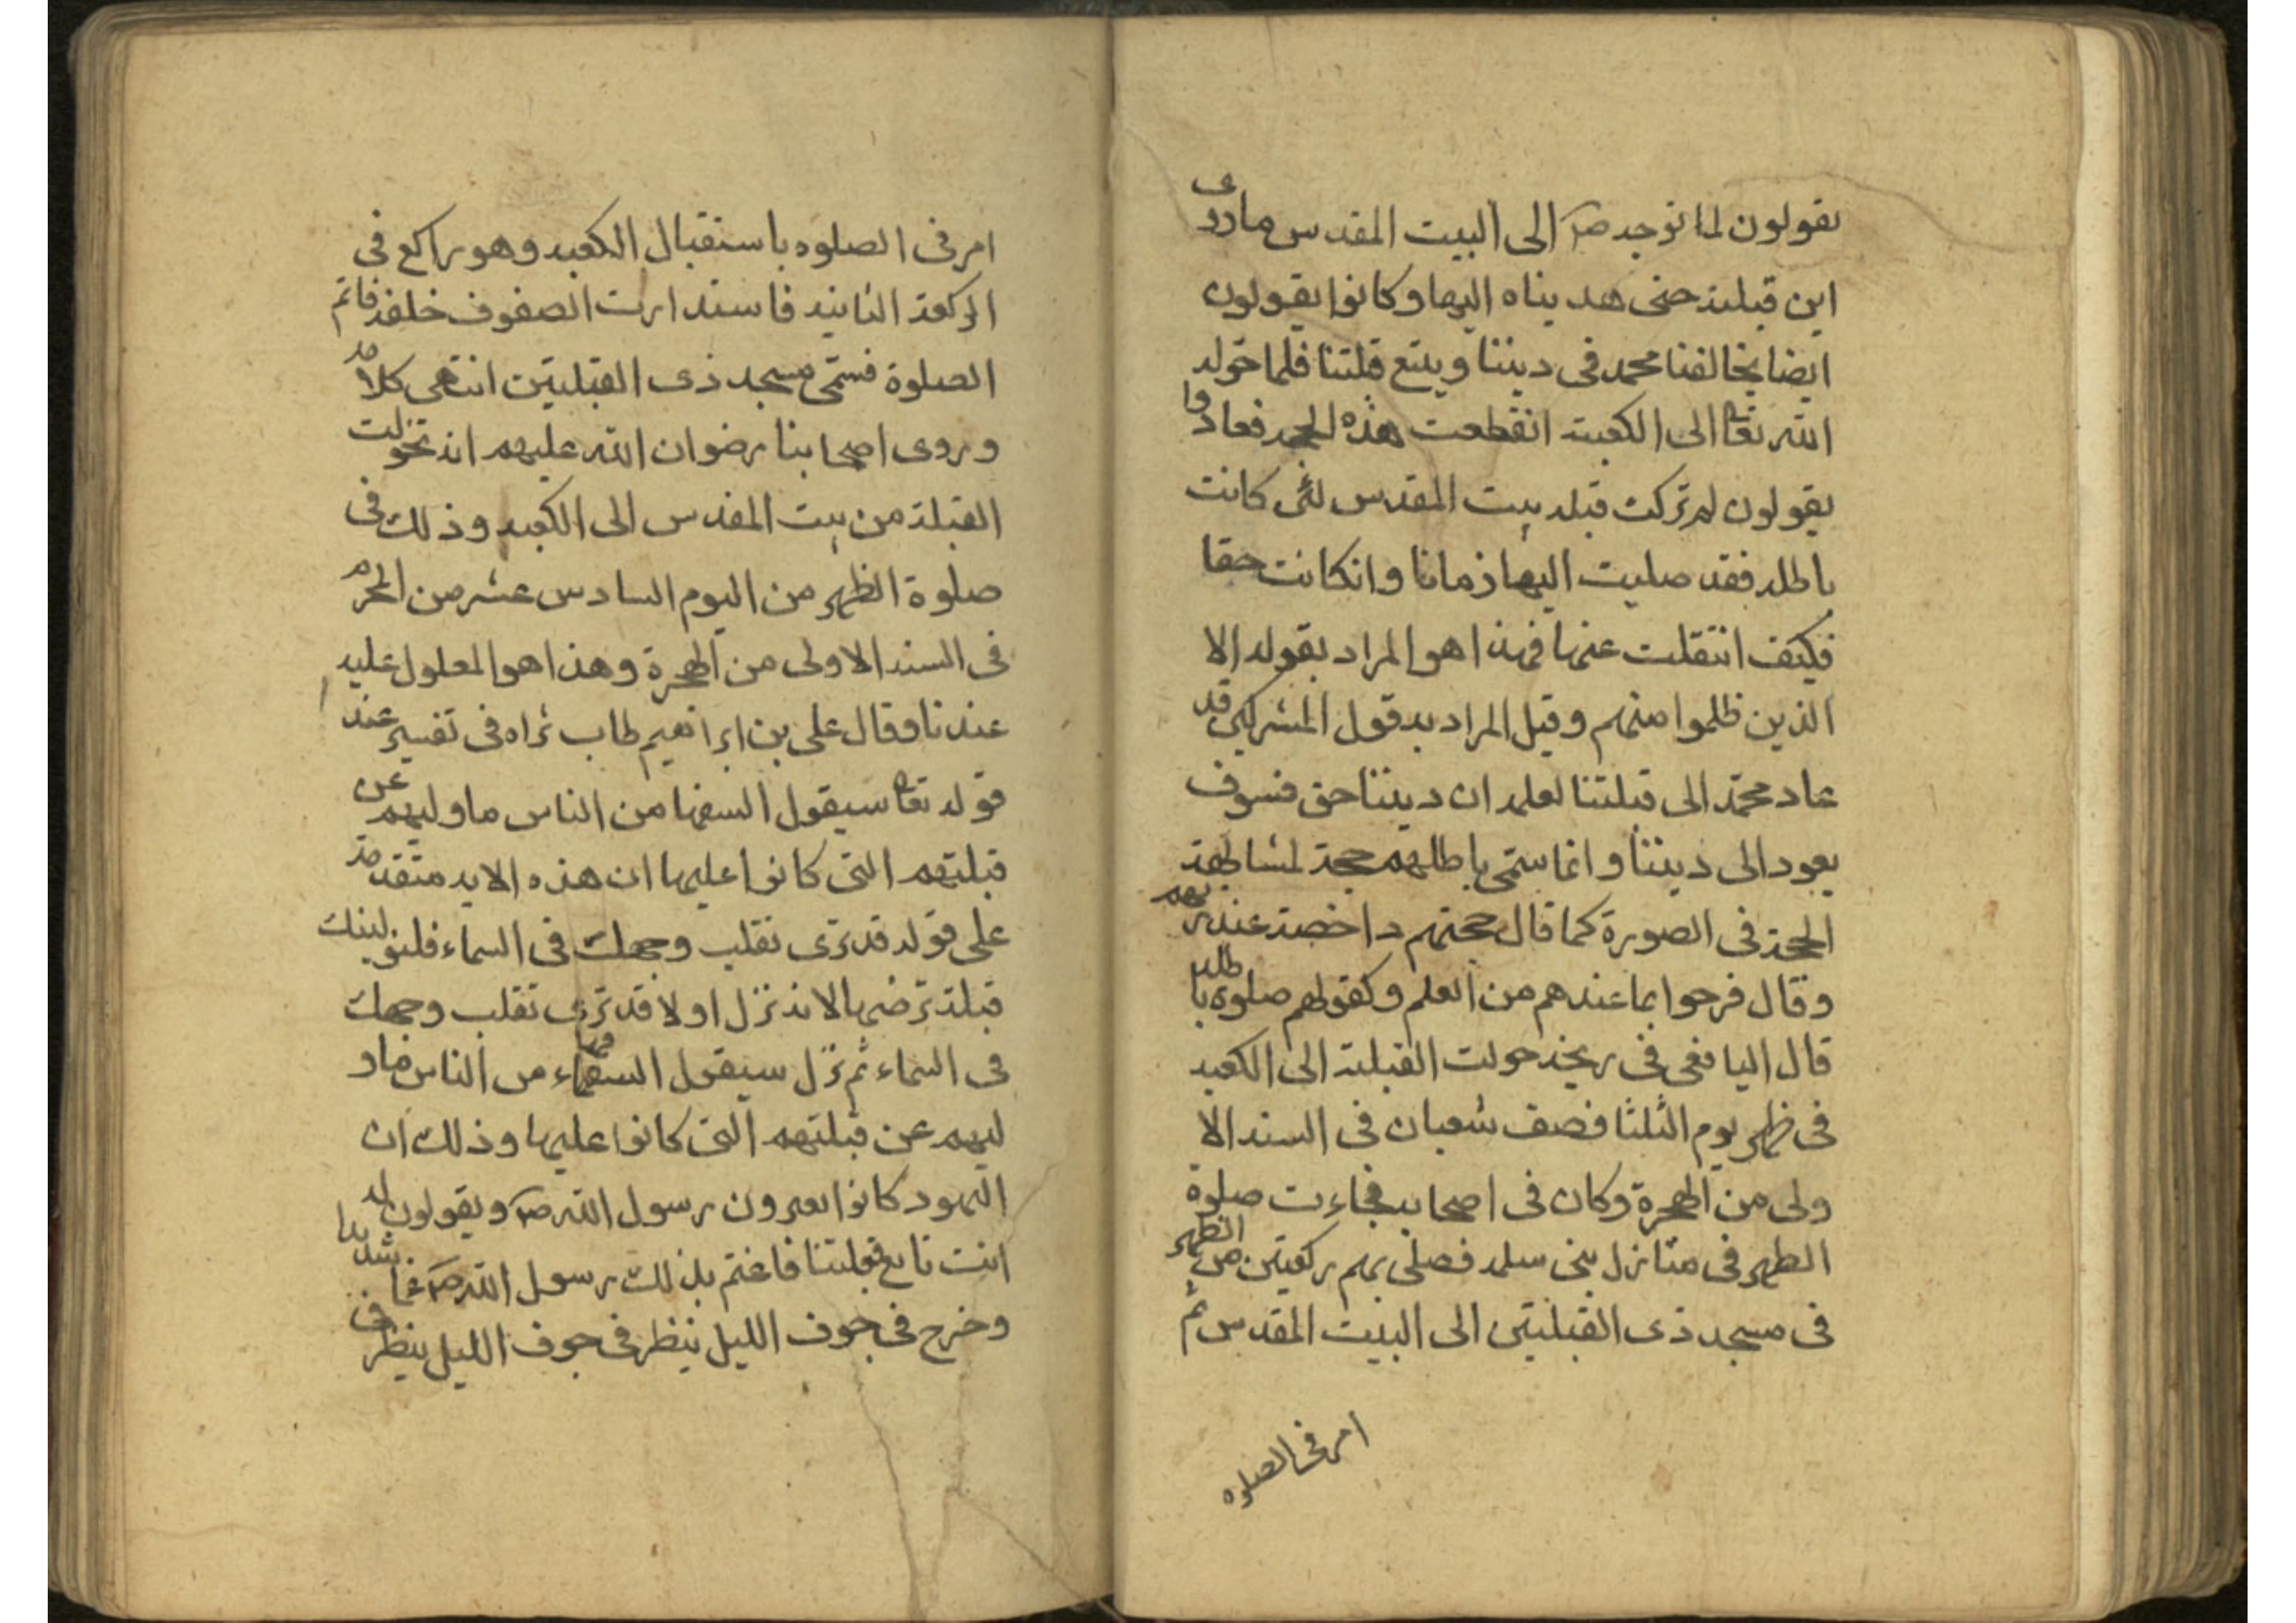 يقولون لما توجه صم الى البيت المقدس ما دری
اين قبلته حتى هديناه اليها وكانوا يقولون
ايضا يخالفنا محمد فى ديننا ويتبع قلتنا فلما حوله
الله تعا الى الكعبة انقطعت هذه الحجه فعادوا
يقولون لم تركت قبله بيت المقدس لئى كانت
باطله فقد صليت اليها زمانا وانكانت حقا
فكيف انتقلت عنها فهذا هو المراد بقوله الا
الذين ظلموا منهم وقيل المراد به قول المشركين قد
عاد محمد الى قبلتنا لعلمه ان ديننا حق فسوف
يعود الى ديننا وانما سمى باطلهم حجة لمشابهة
الحجة فى الصورة كما قال حجتهم داحضة عند ربهم
وقال فرحوا بما عندهم من العلم وكقولهم صلوة باطله
قال اليافعى فى ريخه حولت القبلة الى الكعبه
فى ظهر يوم الثلثا فصف شعبان فى السنه الا
ولى من الهجرة وكان فى اصحابه فجاءت صلوة
الظهر فى منازل بنى سلمه فصلى بهم ركعتين من الظهر
فى مسجد ذى القبلتين الى البيت المقدس ثم
امر فى الصلوه
امر فى الصلوه باستقبال الكعبه وهو راكع فى
الركعة الثانيه فاستدارت الصفوف خلفه فاتم
الصلوة فسمى مسجد ذى القبلتين انتهى كلامه
وروى اصحابنا رضوان الله عليهم انه تحولت
القبلة من بيت المقدس الى الكعبه وذلك فى
صلوة الظهر من اليوم السادس عشر من المحرم
فى السنه الاولى من الهجرة وهذا هو المعلول عليه
عندنا وقال على بن ابراهيم طاب ثراه فى تفسير عند
قوله تعا سيقول السفها من الناس ما وليهم عن
قبلتهم التى كانوا عليها ان هذه الايه متقدمة
على قوله قد ترى تقلب وجهك فى السماء فلنولينك
قبلة ترضيها لانه نزل اولا قد ترى تقلب وجهك
فى السماء ثم نزل سيقول السفهاء من الناس ماو
ليهم عن قبلتهم التى كانوا عليها وذلك ان
اليهود كانوا يعيرون رسول الله صم ويقولون له
انت تابع قبلتنا فاغتم بذلك رسول الله صم غما شديدا
وخرج فى جوف الليل ينظر فى جوف الليل ينظر فى